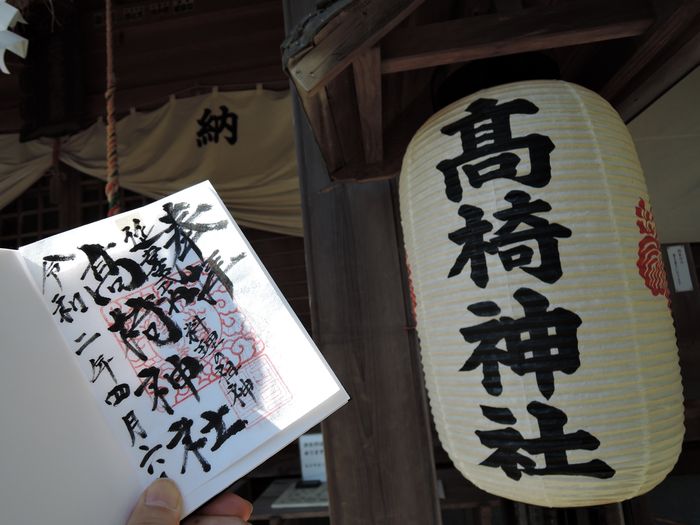 納
奉拝
延喜式内
料理の祖神
髙椅神社
令和二年四月六
髙椅神社